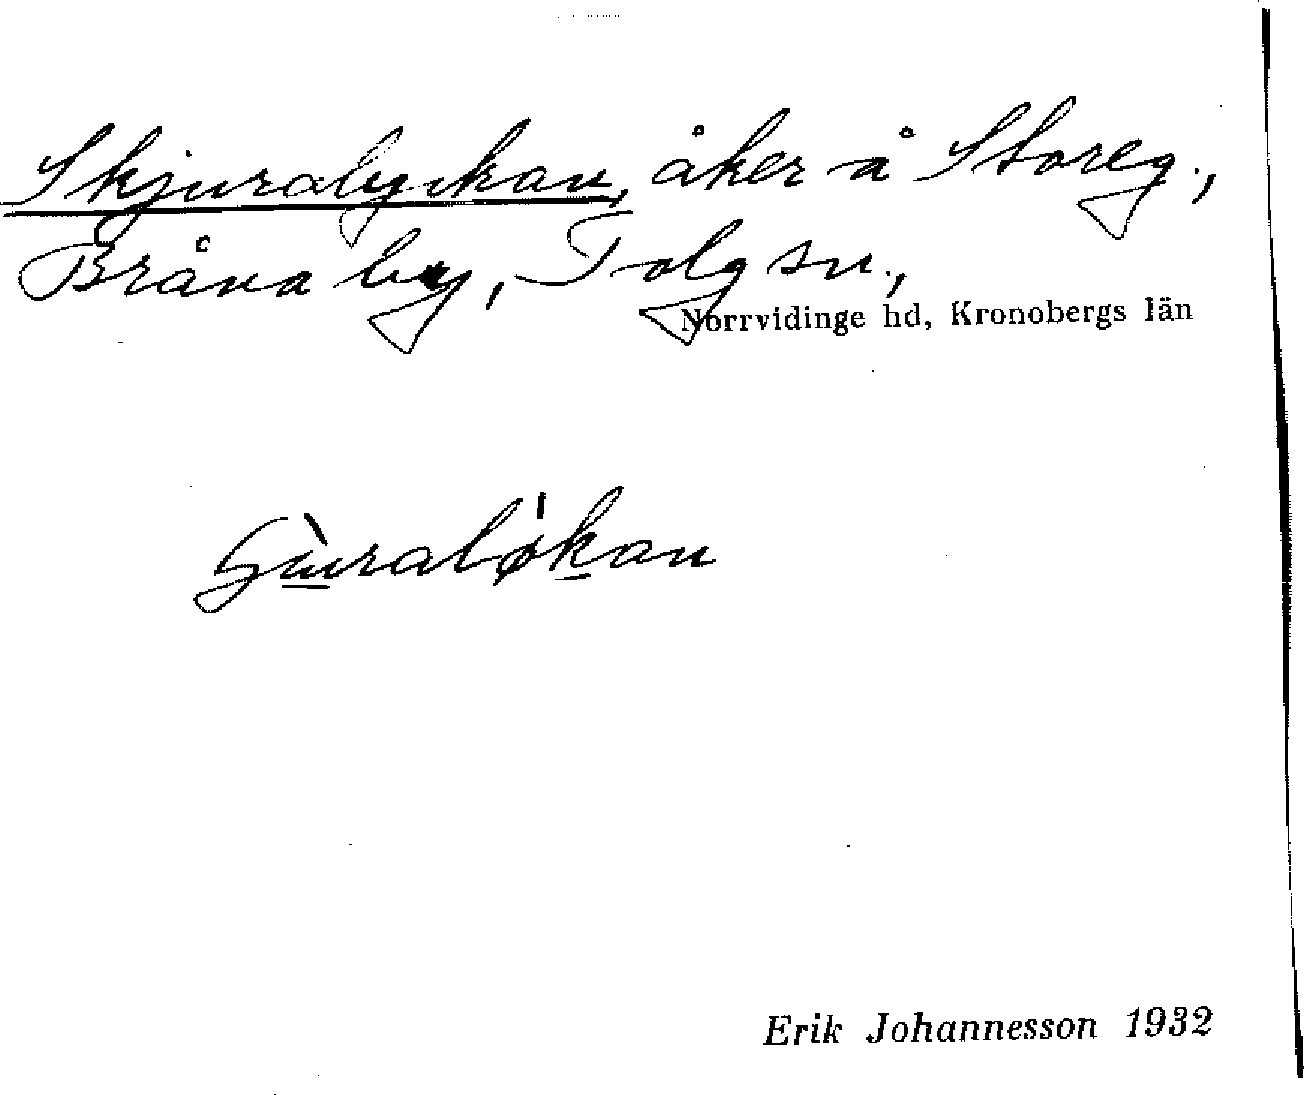 Skjuralyckan, åker å Storeg.,
Bråna by, Tolg sn.,
Norrvidinge hd, Kronobergs län
Erik Johannesson 1932